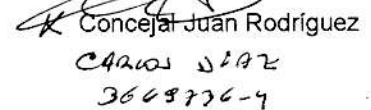 Concejal Juan Rodríguez
CARLOS DÍAZ
3669736-4